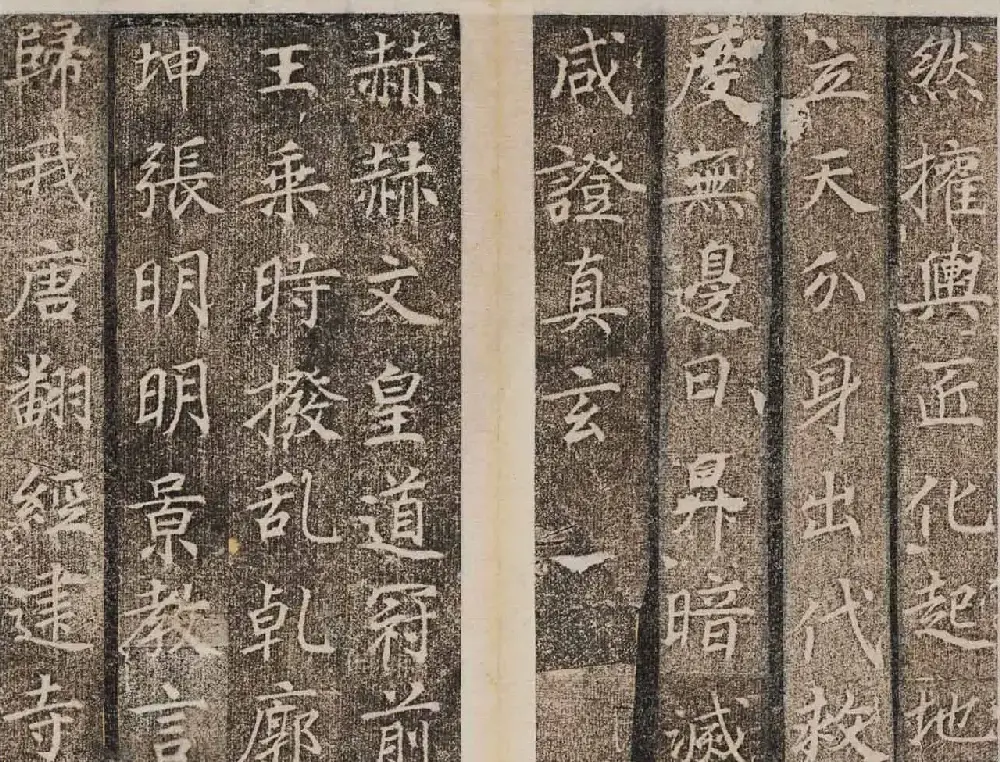 然擁輿匠化起地
立天分身出代救
度無邊日昇暗滅
咸證真玄
赫赫文皇道冠前
王乗時撥乱乹廓
坤張明明景教言
歸我唐翻經建寺